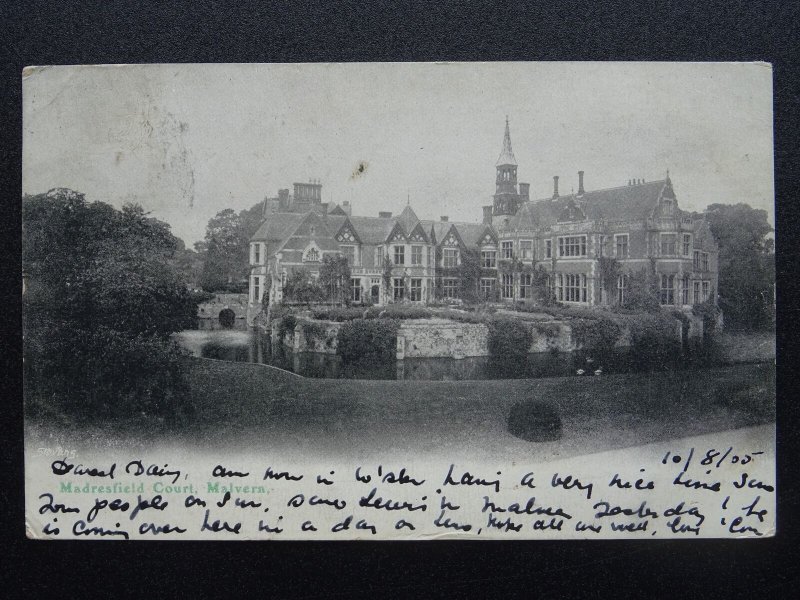 10/8/05
Dearest Daisy, am now in W'ster having a very nice time, saw
Tom's people on Sun, saw Lewis in Malvern yesterday! he
is coming over here in a day or two, hope all are well, love
Madresfield Court, Malvern.